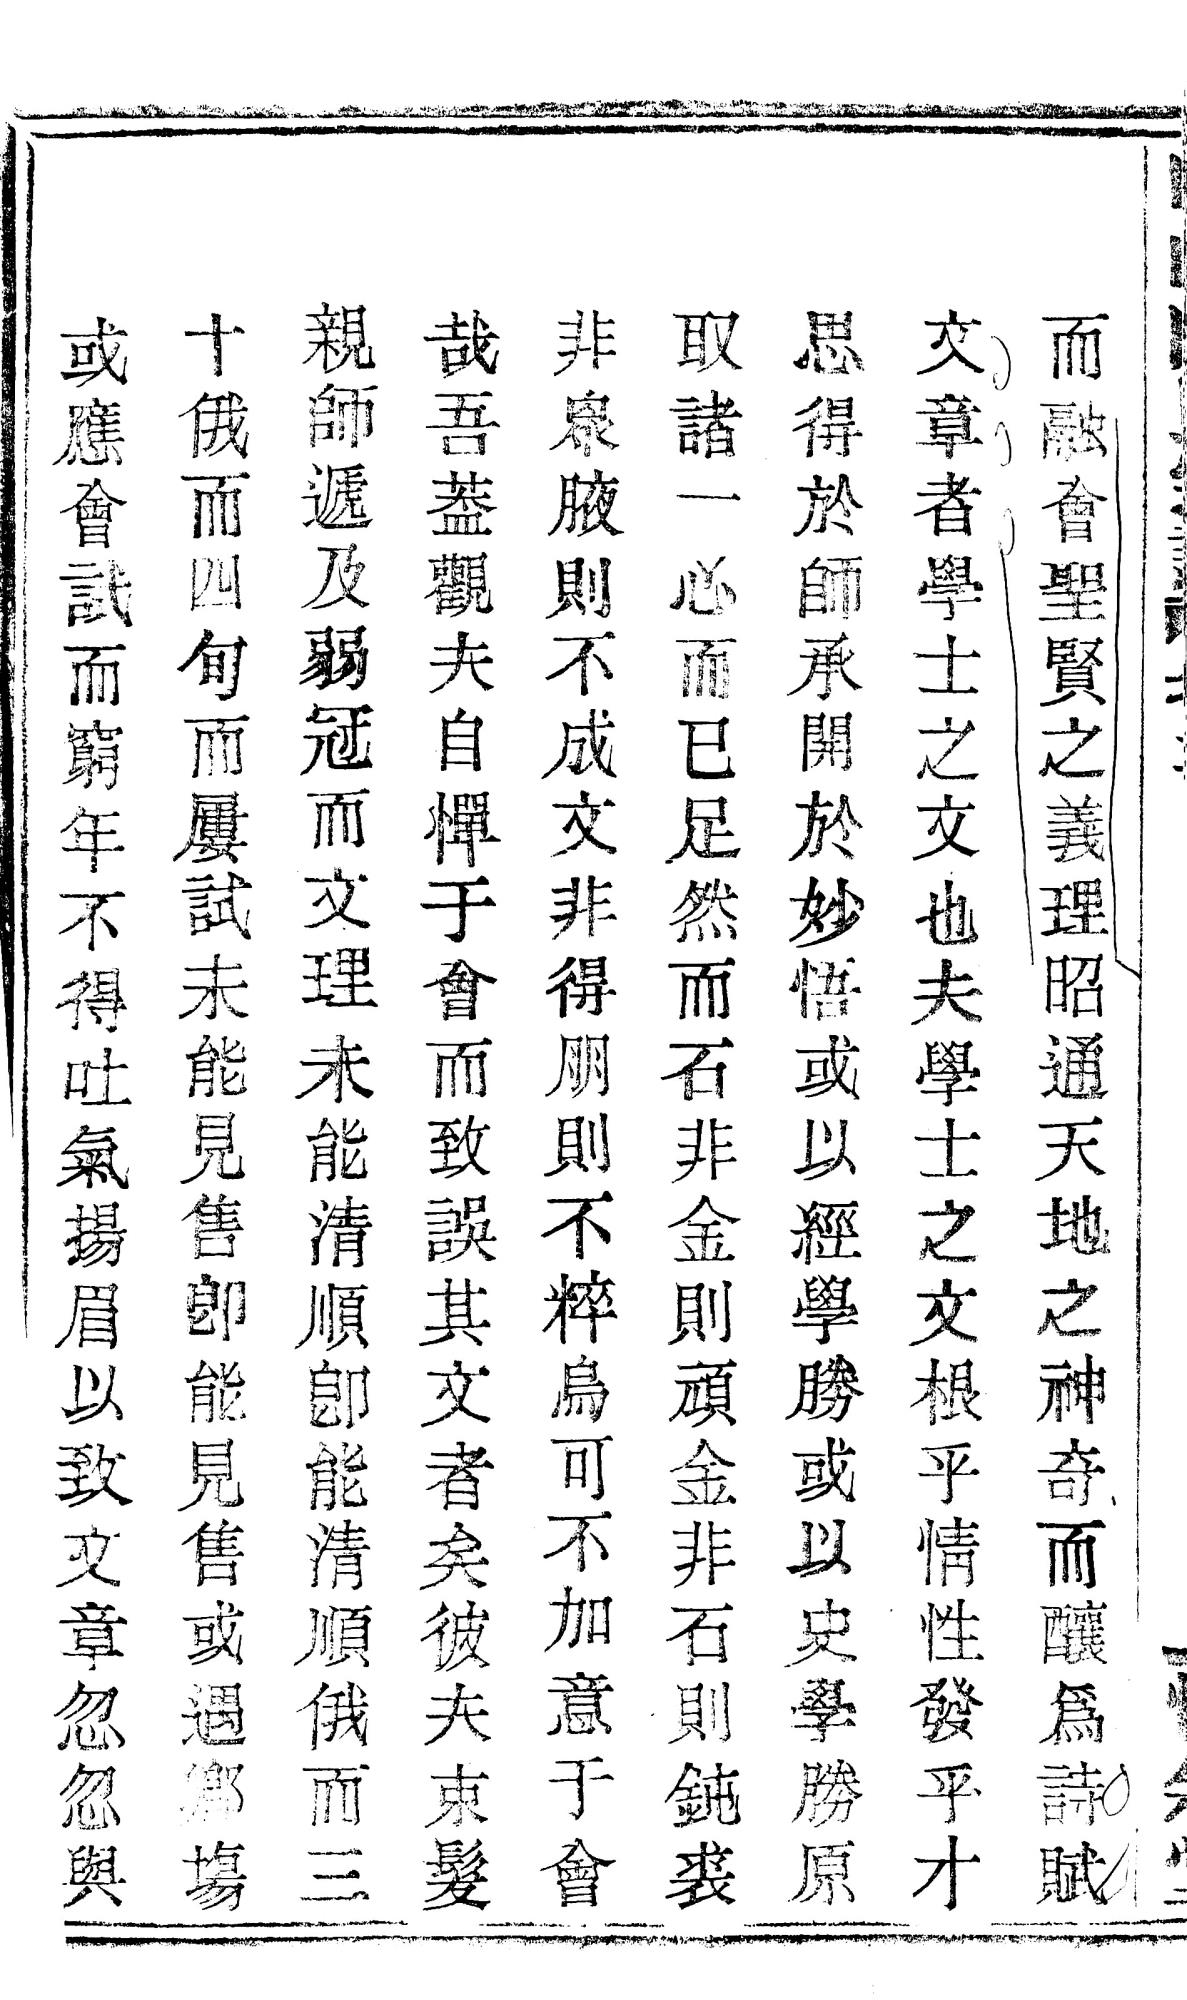 而融會聖賢之義理昭通天地之神奇而釀爲詩賦
文章者學士之文也夫學士之文根乎情性發乎才
思得於師承開於妙悟或以經學勝或以史學勝原
取諸一心而已足然而石非金則頑金非石則鈍裘
非衆腋則不成文非得朋則不粹烏可不加意于會
哉吾葢觀夫自憚于會而致誤其文者矣彼夫束髮
親師遞及弱冠而文理未能清順卽能清順俄而三
十俄而四旬而屢試未能見售卽能見售或遇鄉塲
或應會試而窮年不得吐氣揚眉以致文章忽忽與